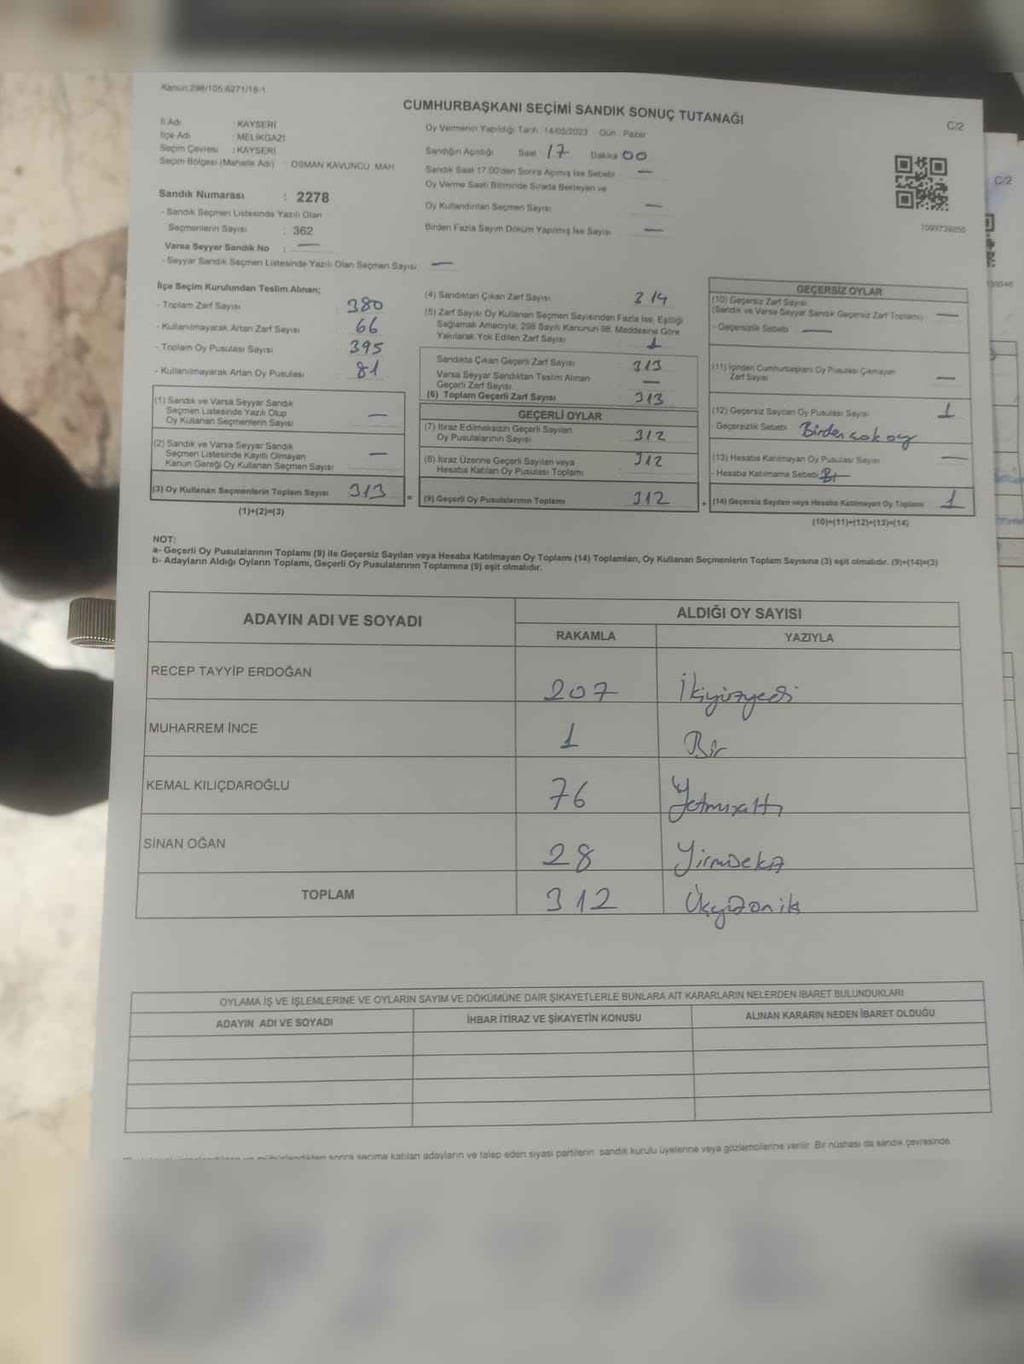 Kanun:298/105,6271/16-1
CUMHURBAŞKANI SEÇİMİ SANDIK SONUÇ TUTANAĞI
C/2
İl Adı : KAYSERİ
İlçe Adı : MELİKGAZİ
Seçim Çevresi : KAYSERİ
Seçim Bölgesi (Mahalle Adı) : OSMAN KAVUNCU MAH.
Oy Vermenin Yapıldığı Tarih : 14/05/2023 Gün : Pazar
Sandığın Açıldığı Saat 17 Dakika 00
Sandık Saat 17.00'den Sonra Açılmış İse Sebebi —
Oy Verme Saati Bitiminde Sırada Bekleyen ve
Oy Kullandırılan Seçmen Sayısı —
Birden Fazla Sayım Döküm Yapılmış İse Sayısı —
Sandık Numarası : 2278
- Sandık Seçmen Listesinde Yazılı Olan
Seçmenlerin Sayısı : 362
Varsa Seyyar Sandık No : —
- Seyyar Sandık Seçmen Listesinde Yazılı Olan Seçmen Sayısı —
İlçe Seçim Kurulundan Teslim Alınan;
- Toplam Zarf Sayısı 380
- Kullanılmayarak Artan Zarf Sayısı 66
- Toplam Oy Pusulası Sayısı 395
- Kullanılmayarak Artan Oy Pusulası 81
(1) Sandık ve Varsa Seyyar Sandık
Seçmen Listesinde Yazılı Olup
Oy Kullanan Seçmenlerin Sayısı —
(2) Sandık ve Varsa Seyyar Sandık
Seçmen Listesinde Kayıtlı Olmayan
Kanun Gereği Oy Kullanan Seçmen Sayısı —
(3) Oy Kullanan Seçmenlerin Toplam Sayısı 313
(1)+(2)=(3)
(4) Sandıktan Çıkan Zarf Sayısı 314
(5) Zarf Sayısı Oy Kullanan Seçmen Sayısından Fazla İse, Eşitliği
Sağlamak Amacıyla, 298 Sayılı Kanunun 98. Maddesine Göre
Yakılarak Yok Edilen Zarf Sayısı 1
Sandıkta Çıkan Geçerli Zarf Sayısı 313
Varsa Seyyar Sandıktan Teslim Alınan
Geçerli Zarf Sayısı —
(6) Toplam Geçerli Zarf Sayısı 313
GEÇERLİ OYLAR
(7) İtiraz Edilmeksizin Geçerli Sayılan
Oy Pusulalarının Sayısı 312
(8) İtiraz Üzerine Geçerli Sayılan veya
Hesaba Katılan Oy Pusulası Toplamı 312
(9) Geçerli Oy Pusulalarının Toplamı 312
GEÇERSİZ OYLAR
(10) Geçersiz Zarf Sayısı
(Sandık ve Varsa Seyyar Sandık Geçersiz Zarf Toplamı) —
- Geçersizlik Sebebi —
(11) İçinden Cumhurbaşkanı Oy Pusulası Çıkmayan
Zarf Sayısı —
(12) Geçersiz Sayılan Oy Pusulası Sayısı 1
- Geçersizlik Sebebi Birden çok oy
(13) Hesaba Katılmayan Oy Pusulası Sayısı —
- Hesaba Katılmama Sebebi
(14) Geçersiz Sayılan veya Hesaba Katılmayan Oy Toplamı 1
(10)+(11)+(12)+(13)=(14)
NOT:
a- Geçerli Oy Pusulalarının Toplamı (9) ile Geçersiz Sayılan veya Hesaba Katılmayan Oy Toplamı (14) Toplamları, Oy Kullanan Seçmenlerin Toplam Sayısına (3) eşit olmalıdır. (9)+(14)=(3)
b- Adayların Aldığı Oyların Toplamı, Geçerli Oy Pusulalarının Toplamına (9) eşit olmalıdır.
ADAYIN ADI VE SOYADI
ALDIĞI OY SAYISI
RAKAMLA YAZIYLA
RECEP TAYYİP ERDOĞAN 207 İkiyüzyedi
MUHARREM İNCE 1 Bir
KEMAL KILIÇDAROĞLU 76 Yetmişaltı
SİNAN OĞAN 28 Yirmisekiz
TOPLAM 312 Üçyüzoniki
OYLAMA İŞ VE İŞLEMLERİNE VE OYLARIN SAYIM VE DÖKÜMÜNE DAİR ŞİKAYETLERLE BUNLARA AİT KARARLARIN NELERDEN İBARET BULUNDUKLARI
ADAYIN ADI VE SOYADI İHBAR İTİRAZ VE ŞİKAYETİN KONUSU ALINAN KARARIN NEDEN İBARET OLDUĞU
sonra seçime katılan adayların ve talep eden siyasi partilerin sandık kurulu üyelerine veya gözlemcilerine verilir. Bir nüshası da sandık çevresinde
C/2